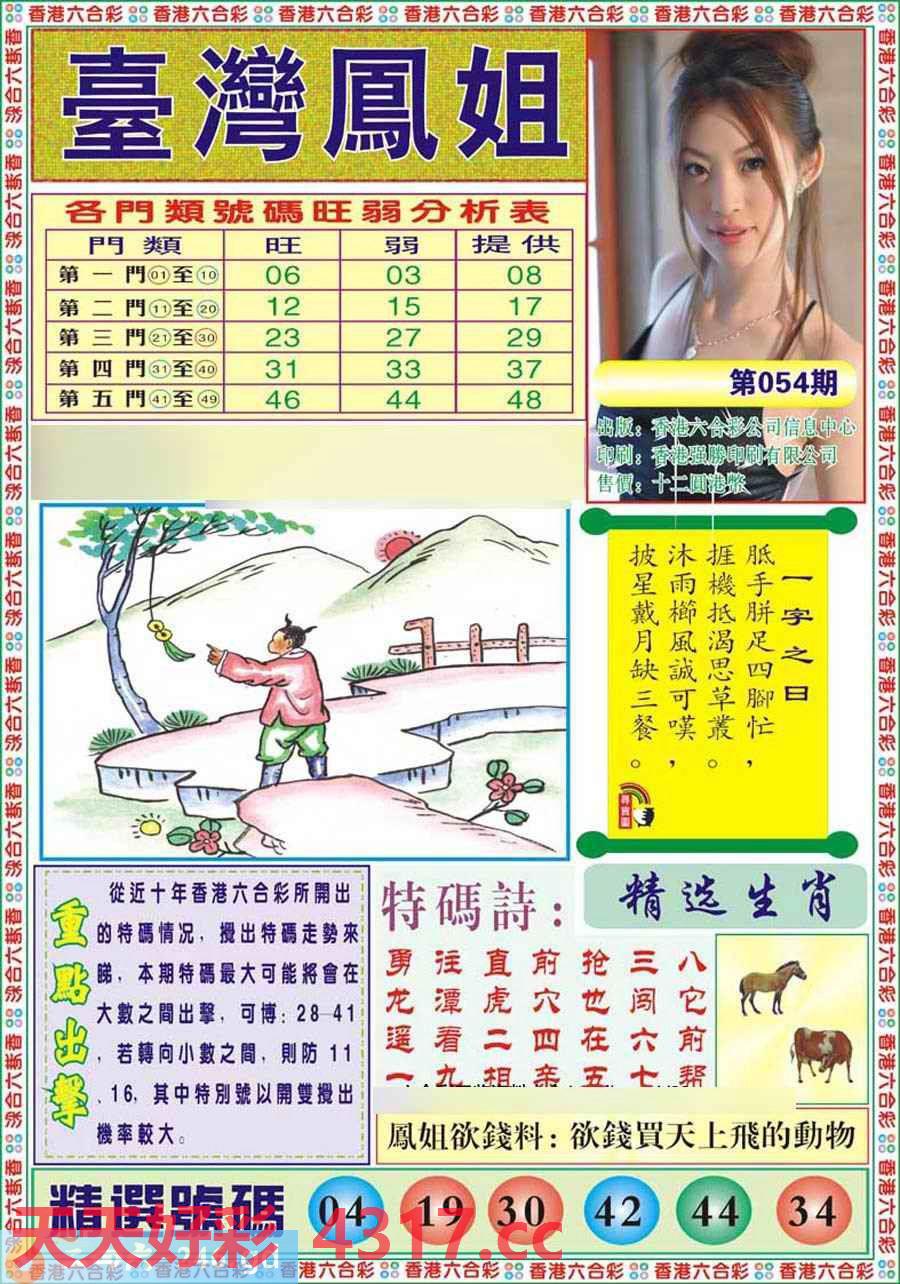 香港六合彩 香港六合彩 香港六合彩 香港六合彩 香港六合彩 香港六合彩 香港六合彩
臺灣鳳姐
各門類號碼旺弱分析表
門類 旺 弱 提供
第一門01至10 06 03 08
第二門11至20 12 15 17
第三門21至30 23 27 29
第四門31至40 31 33 37
第五門41至49 46 44 48
第054期
出版：香港六合彩公司信息中心
印刷：香港强勝印刷有限公司
售價：十二圓港幣
一字之曰
胝手胼足四腳忙，
捱機抵渴思草叢。
沐雨櫛風誠可嘆，
披星戴月缺三餐。
尋寶圖
重點出擊
從近十年香港六合彩所開出
的特碼情况，攪出特碼走勢來
睇，本期特碼最大可能將會在
大數之間出擊，可博：28—41
，若轉向小數之間，則防 11
、16，其中特別號以開雙攪出
機率較大。
特碼詩：
勇往直前抢三八
龙潭虎穴也闯它
遥看二四在六前
一九相亲五七
精选生肖
鳳姐欲錢料：欲錢買天上飛的動物
精選號碼 04 19 30 42 44 34
天天好彩 4317.cc
香港六合彩 香港六合彩 香港六合彩 香港六合彩 香港六合彩